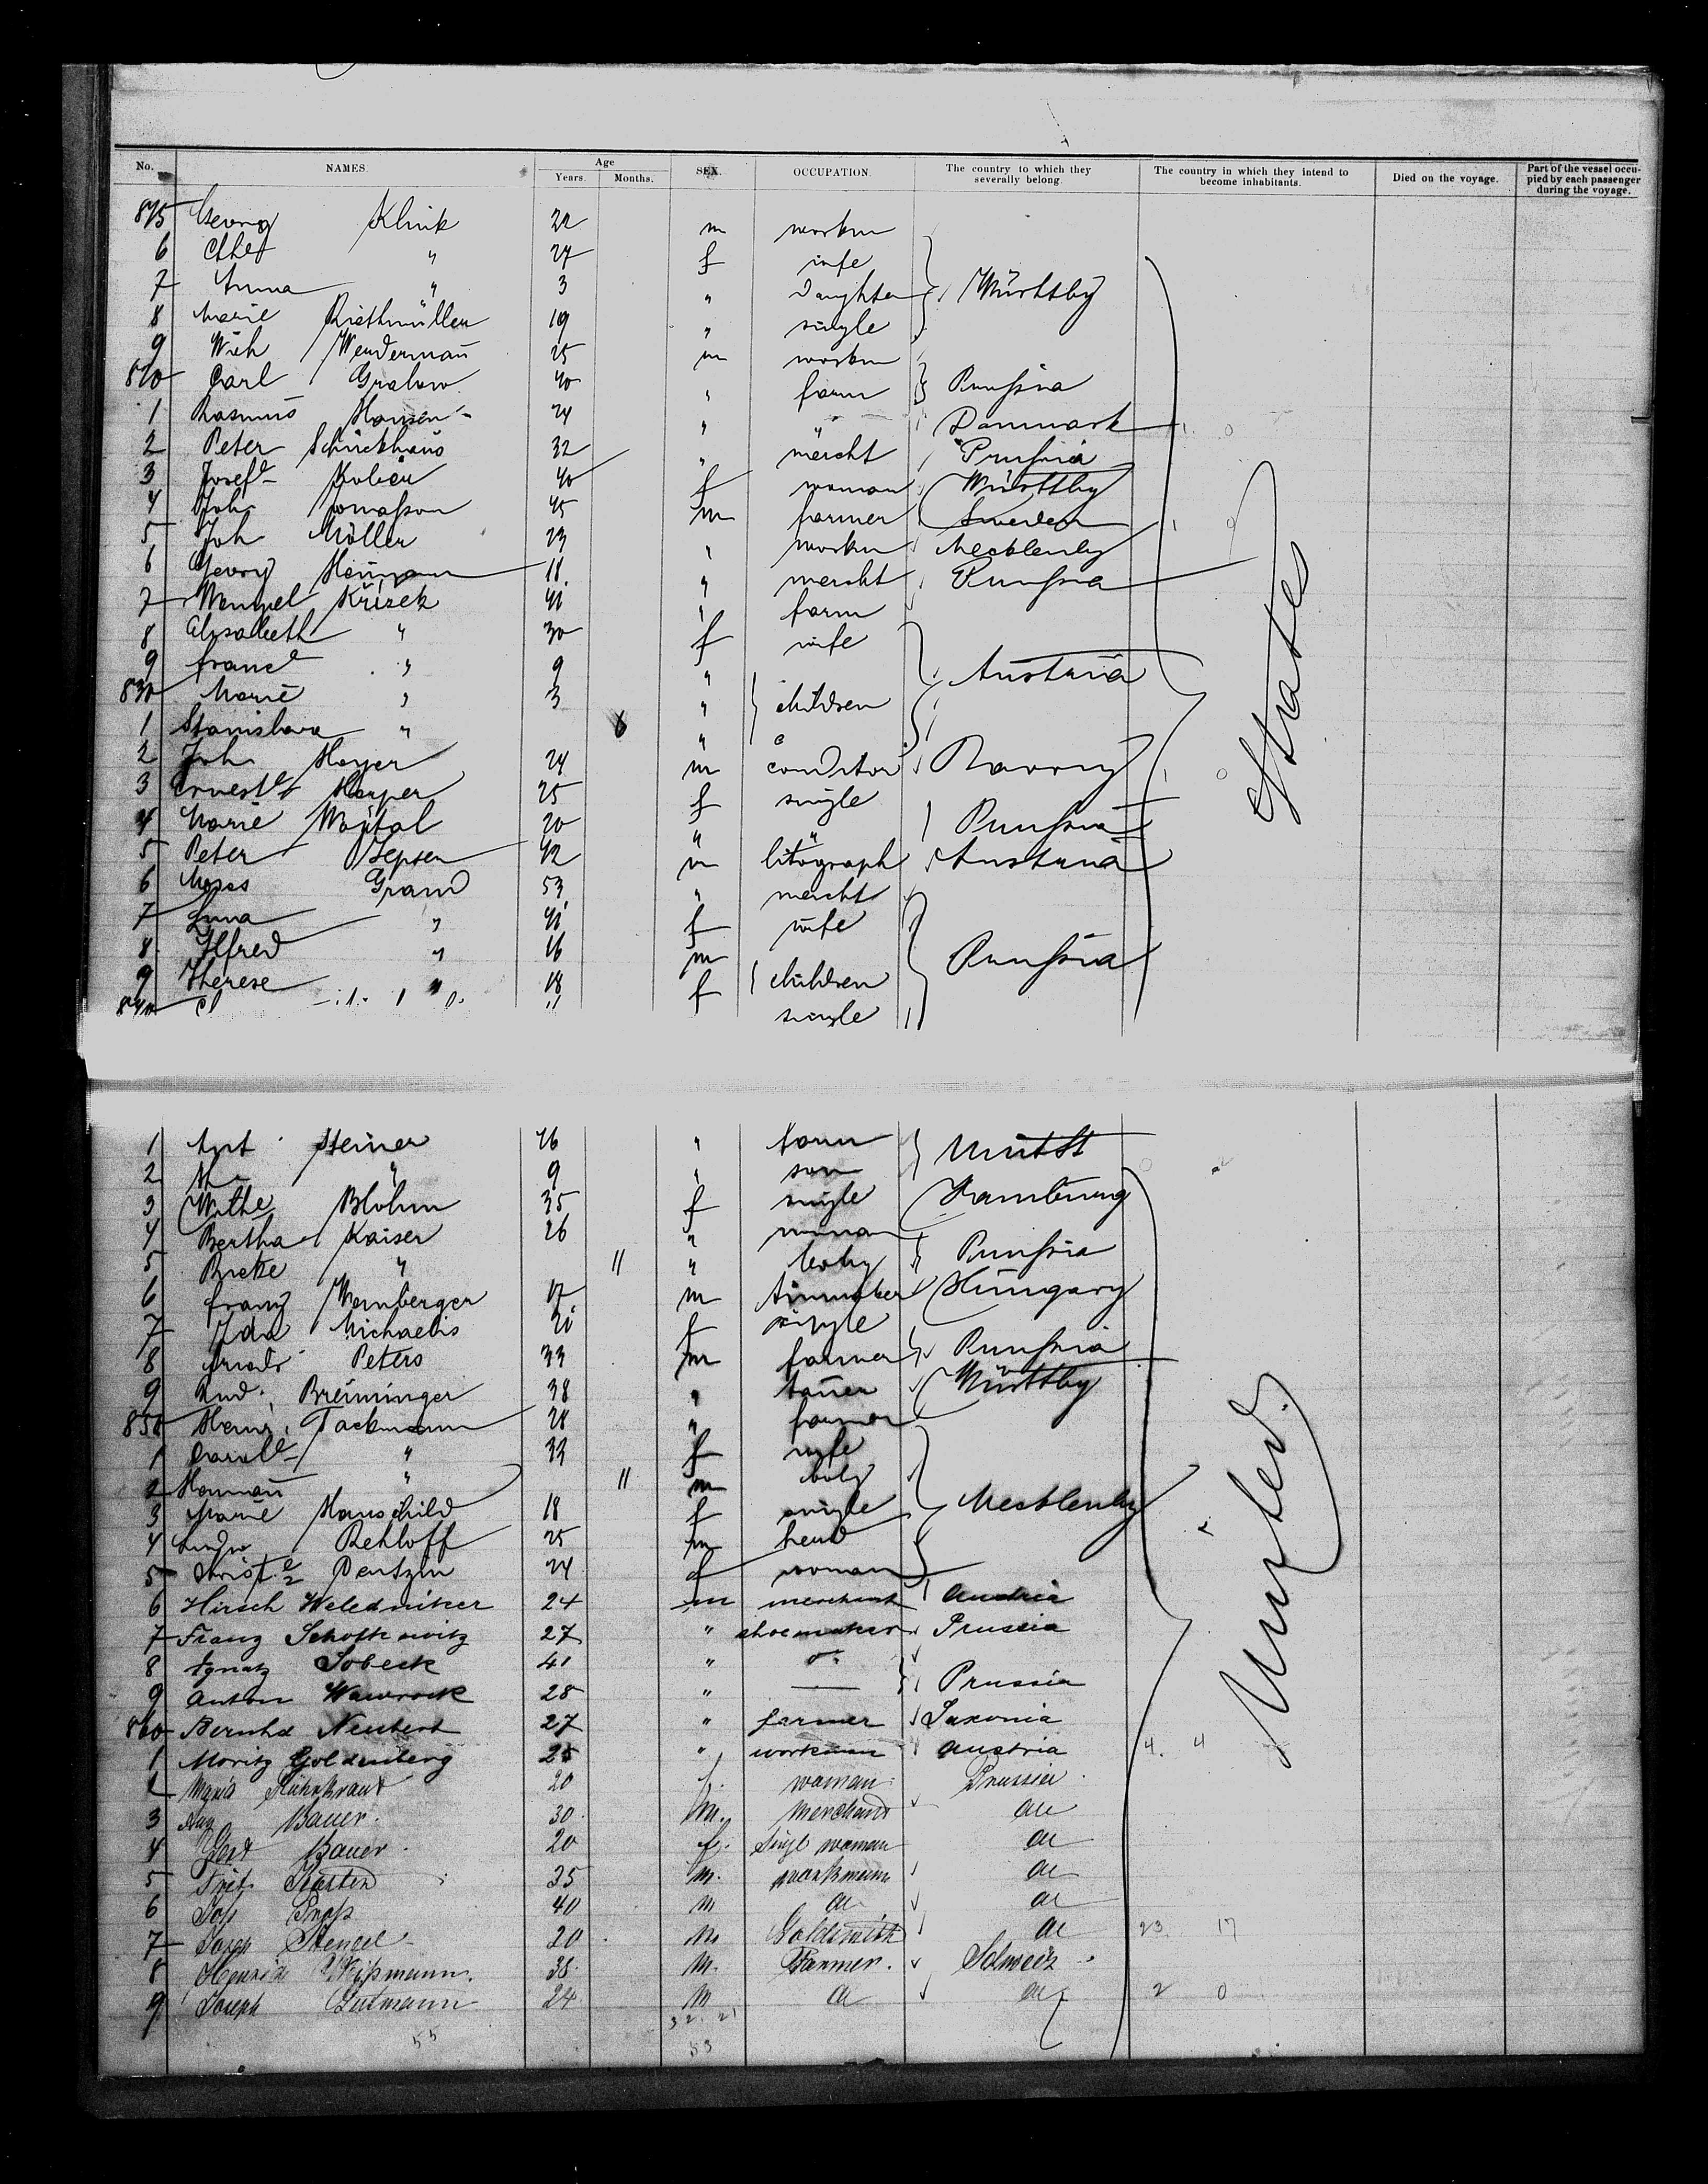 No. NAMES. Age Years. Months. SEX. OCCUPATION. The country to which they severally belong. The country in which they intend to become inhabitants. Died on the voyage. Part of the vessel occupied by each passenger during the voyage.
815 Georg Klink 22 m workm
6 " 27 f wife
7 Anna " 3 " Daughter Württbg
8 Marie Riethmüller 19 " single
9 Wilh Wendermañ 25 m workm
820 Carl Grabow 40 " farm Prussia
1 Rasmus Hansen 24 " " Danmark 1. 0
2 Peter Schückhaus 32 " mercht Prussia
3 Josef 40 f woman Württbg
4 Joh Jonasson 45 m farmer Sweden 1 0
5 Joh Möller 23 " workm Mecklenbg
6 Georg Heimann 18. " mercht Prussia
7 Wenzel Krizek 41 " farm
8 Elisabeth " 30 f wife
9 franc " 9 " Austria
830 Marie " 3 " children
1 Stanislava " 6 "
2 Joh Mayer 24 m conditor 1 0
3 Ernest Harper 25 f single
4 Marie Wojtal 20 " " Prussia
5 Peter Jepsen 42 m litograph Austria
6 Moses Grand 53 " mercht
7 " 41 f wife
8 Alfred " 16 m Prussia
9 Therese " 18 f children
840 single
States
1 Ant Steiner 46 " farm Unit St
2 " 9 " son
3 Blohm 35 f single Hamburg
4 Bertha Kaiser 26 " woman
5 " 11 " baby Prussia
6 franz Wemberger 17 m Hungary
7 Ida Michaelis 21 f single
8 Peters 33 m farmer Prussia
9 Rud. Breininger 38 " tañer Württbg
850 Heinr. Tackmann 28 " farmer
1 Carol " 33 f wife
2 Hermañ " 11 m baby
3 Marie Hauschild 18 f single Mecklenbg
4 Ludw Rehloff 25 m
5 Christ Pentzin 24 f woman
6 Hirsch Weledniker 24 m merchant Austria
7 Franz Schottkowitz 27 " shoemaker Prussia
8 Ignatz Sobeck 41 " do
9 Anton Wawrock 28 " — Prussia
860 Bernhd Neubert 27 " farmer Saxonia
1 Moritz Goldenberg 25 " workman Austria 4. 4
2 Maria 20 f. woman Prussia
3 Aug Bauer. 30. m. Merchant do
4 Bauer. 20 f. Singl woman do
5 Karsten 35 m. workmann do
6 Jos 40 m do do
7 Joseph Stengel 20 m Goldsmith do 23. 17
8 Weissmann. 38. m. Farmer. Schweiz
9 Joseph Gutmann 24 m do do 2 0
United
32. 21
55 53